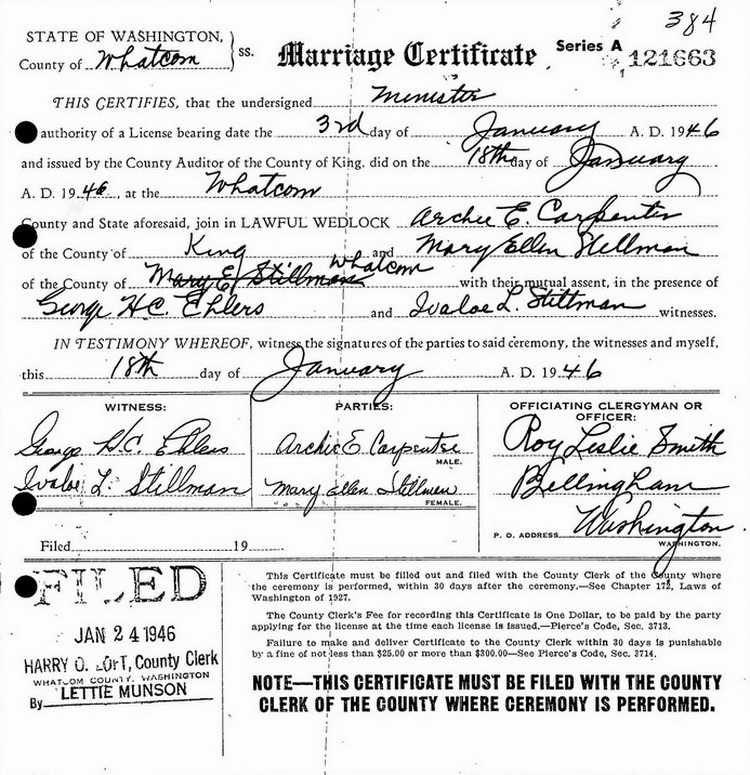 384
STATE OF WASHINGTON,
County of Whatcom } ss. Marriage Certificate Series A 121663
THIS CERTIFIES, that the undersigned Minister
authority of a License bearing date the 3rd day of January A. D. 1946
and issued by the County Auditor of the County of King. did on the 18th day of January
A. D. 1946, at the Whatcom
County and State aforesaid, join in LAWFUL WEDLOCK Archie E. Carpenter
of the County of King and Mary Ellen Stillman
of the County of Mary E. Stillman Whatcom with their mutual assent, in the presence of
George H.C. Ehlers and Ivaloe L. Stillman witnesses.
IN TESTIMONY WHEREOF, witness the signatures of the parties to said ceremony, the witnesses and myself,
this 18th day of January A. D. 1946
WITNESS: PARTIES: OFFICIATING CLERGYMAN OR OFFICER:
George H.C. Ehlers Archie E. Carpenter Roy Leslie Smith
MALE.
Ivaloe L. Stillman Mary Ellen Stillman Bellingham
FEMALE.
P. O. ADDRESS Washington
WASHINGTON.
Filed 19
FILED
JAN 24 1946
HARRY O. County Clerk
WHATCOM COUNTY, WASHINGTON
By LETTIE MUNSON
This Certificate must be filled out and filed with the County Clerk of the County where
the ceremony is performed, within 30 days after the ceremony.—See Chapter 172, Laws of
Washington of 1927.
The County Clerk's Fee for recording this Certificate is One Dollar, to be paid by the party
applying for the license at the time each license is issued.—Pierce's Code, Sec. 3713.
Failure to make and deliver Certificate to the County Clerk within 30 days is punishable
by a fine of not less than $25.00 or more than $300.00—See Pierce's Code, Sec. 3714.
NOTE—THIS CERTIFICATE MUST BE FILED WITH THE COUNTY
CLERK OF THE COUNTY WHERE CEREMONY IS PERFORMED.